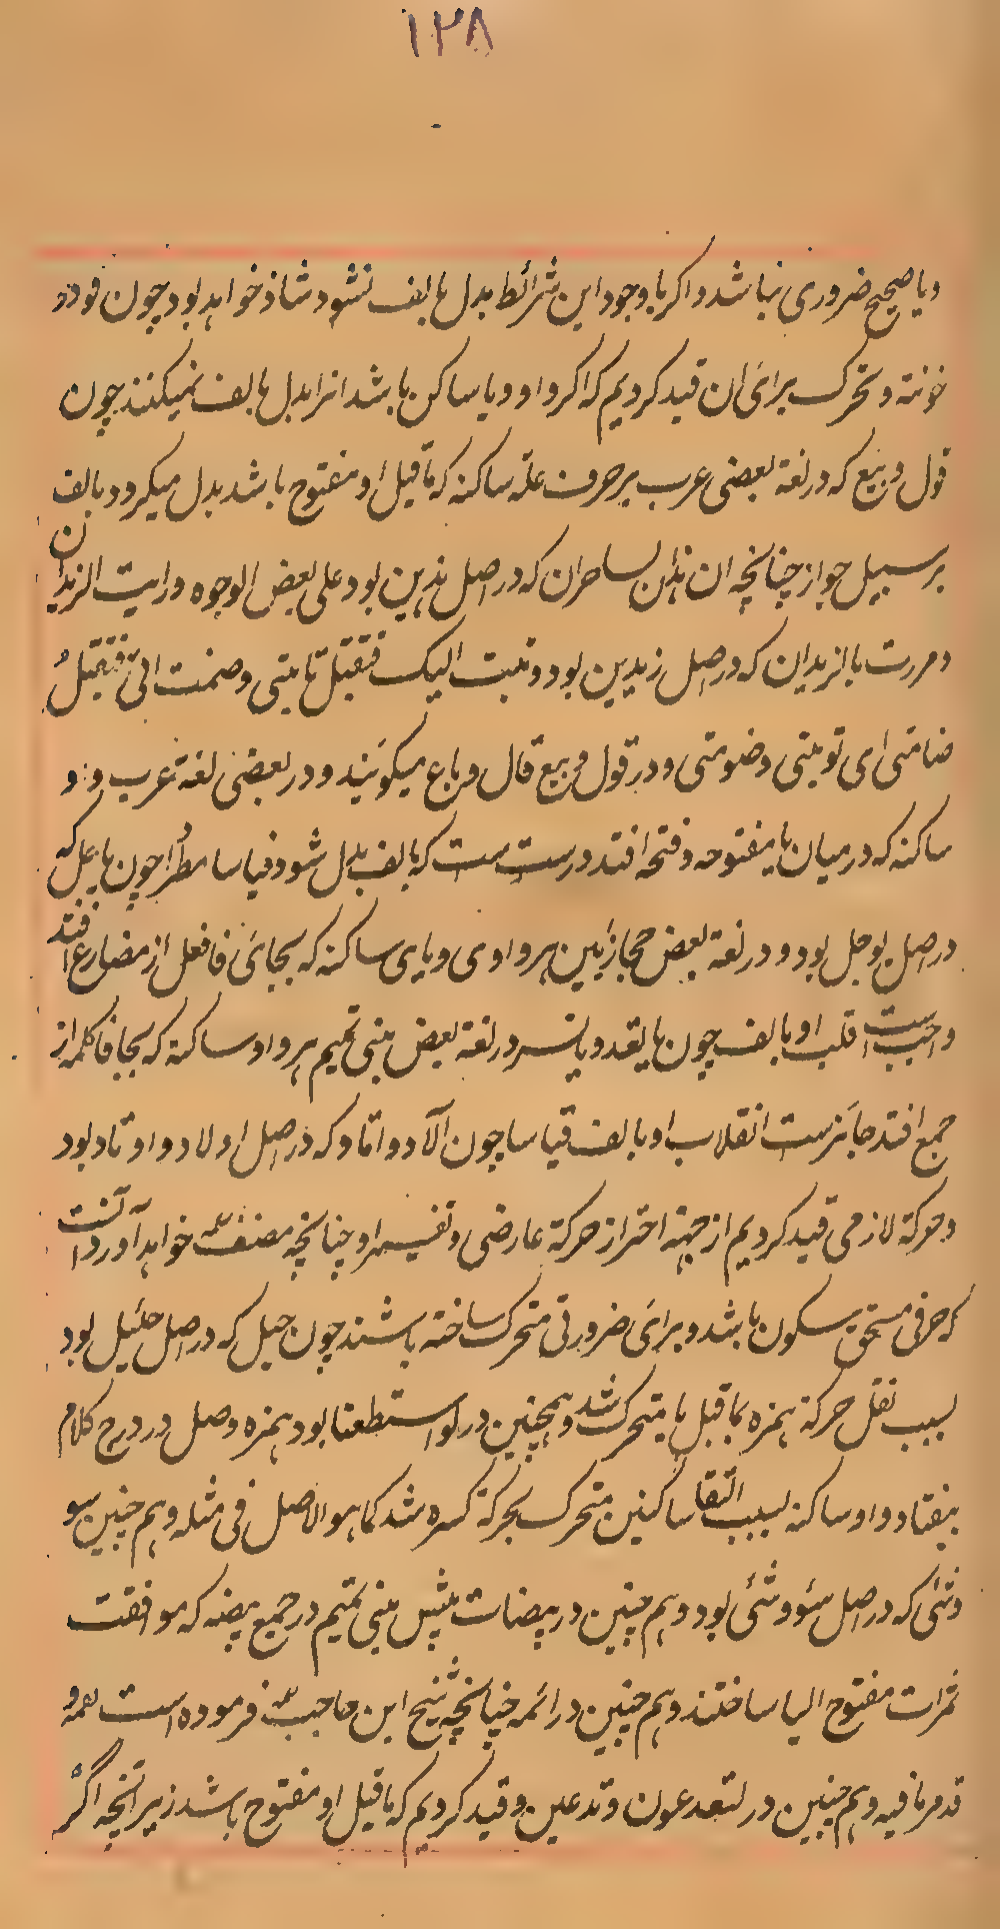 ١٢٨
و یا صحیح ضروری نباشد و اکر با وجود این شرائط بدل بالف نشود شاذ خواهد بود چون قود و
خونة و تحرک برای ان قید کردیم که اکر واو و یا ساکن باشد انرا بدل بالف نمیکنند چون
قول و بیع که در لغة بعضی عرب هر حرف علة ساکنه که ماقبل او مفتوح باشد بدل میکردد بالف
بر سبیل جواز چنانچه ان هذن لساحران که در اصل هذین بود علی بعض الوجوه و رایت الزیدان
و مررت بالزیدان که در اصل زیدین بود و تبت الیک فتقبل تابتی و صمت الی فتقبل
صامتی ای توبتی و صومتی و در قول و بیع قال و باع میکویند و در بعضی لغة عرب واو
ساکنه که در میان یا مفتوحه و فتحه افتد درست ست که بالف بدل شود قیاسا مطردا چون یاجل که
در اصل یوجل بود و در لغة بعض حجازیین هر واوی و یای ساکنه که بجای فا فعل از مضارع افتد
واجب است قلب او بالف چون یاتعد و یاتسر در لغة بعض بنی تمیم هر واو ساکنه که بجا فا کلمه از
جمع افتد جائز ست انقلاب او بالف قیاسا چون آلاد و اتاد که در اصل اولاد و اوتاد بود
و حرکة لازمی قید کردیم از جهة احتراز حرکة عارضی و تفسیر او چنانچه مصنف خواهد آورد آنست
که حرفی مستحق سکون باشد و برای ضرورتی متحرک ساخته باشند چون جیل که در اصل جئیل بود
بسبب نقل حرکة همزه بماقبل یا متحرک شد و همچنین در لو استطعنا بود همزه وصل در درج کلام
بیفتاد واو ساکنه بسبب التقا ساکنین متحرک بحرکة کسره شد کما هو الاصل فی مثله و هم چنین سو
و شی که در اصل سوء و شیء بود و هم چنین در بیضات پیش بنی تمیم در جمع بیضه که موافقت
تمرات مفتوح الیا ساختند و هم چنین در ائمه چنانچه شیخ ابن حاجب فرموده است
قد مر ما فیه و هم چنین در لتدعون و تدعین و قید کردیم که ماقبل او مفتوح باشد زیرانچه اگر